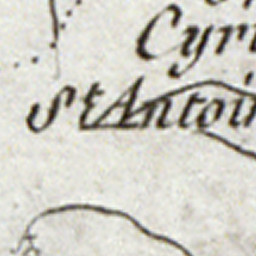 Cyri
St Antoin